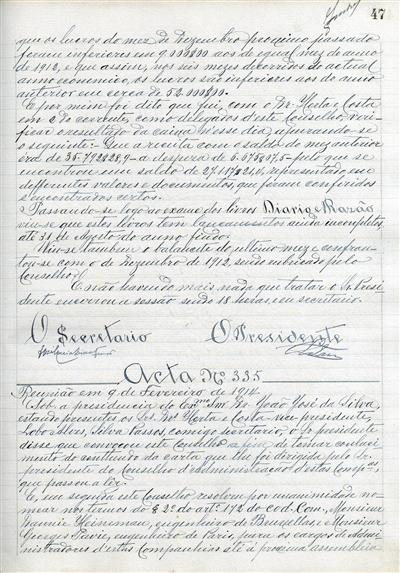 47
que os lucros do mez de Dezembro proximo passado
foram inferiores em 9.000$00 aos de egual mez do anno
de 1912, e que assim, nos seis mezes decorridos do actual
anno economico, os lucros são inferiores aos do anno
anterior em cerca de 52.000$00.
E por mim foi dito que fui, com o Dr. Horta e Costa
em 2 do corrente, como delegados d'este Conselho veri-
ficar o resultado da caixa n'esse dia, apurando-se
o seguinte: Que a receita com o saldo do mez anterior
era de e a despeza de pelo que se
encontrou um saldo de representado em
differentes valores e documentos, que foram conferidos
e encontrados certos.
Passando-se logo ao exame dos livros Diario e Razão
viu-se que estes livros tem lançamentos ainda incompletos
até 31 de Agosto do anno findo.
Viu-se tambem o balancete do ultimo mez e confron-
tou-se com o de Dezembro de 1912, sendo rubricado pelo
Conselho.
E não havendo mais nada que tratar o Sr. Presi-
dente encerrou a sessão sendo 18 horas, eu secretario.
O Secretario O Presidente
Acta Nº 335
Reunião em 9 de Fevereiro de 1914
Sob a presidencia do Exmo Snr. João José da Silva,
estando presentes os Srs. Drs. Horta e Costa vice presidente,
Lobo Alves, Silva Passos, comigo secretario, o Sr. presidente
disse que convocou este Conselho a fim de tomar conheci-
mento do conteudo da carta que lhe foi dirigida pelo Sr.
presidente do Conselho d'Administração d'estas Compas,
que passou a ler.
E, em seguida este Conselho resolveu por unanimidade no-
mear nos termos do § 2º do artº 172 do cod. Com., Monsieur
Dannie Heineman, engenheiro de Bruxellas e Monsieur
Georges Pavie, engenheiro de Paris, para os cargos de Admi-
nistradores d'estas Companhias até á proxima assembleia